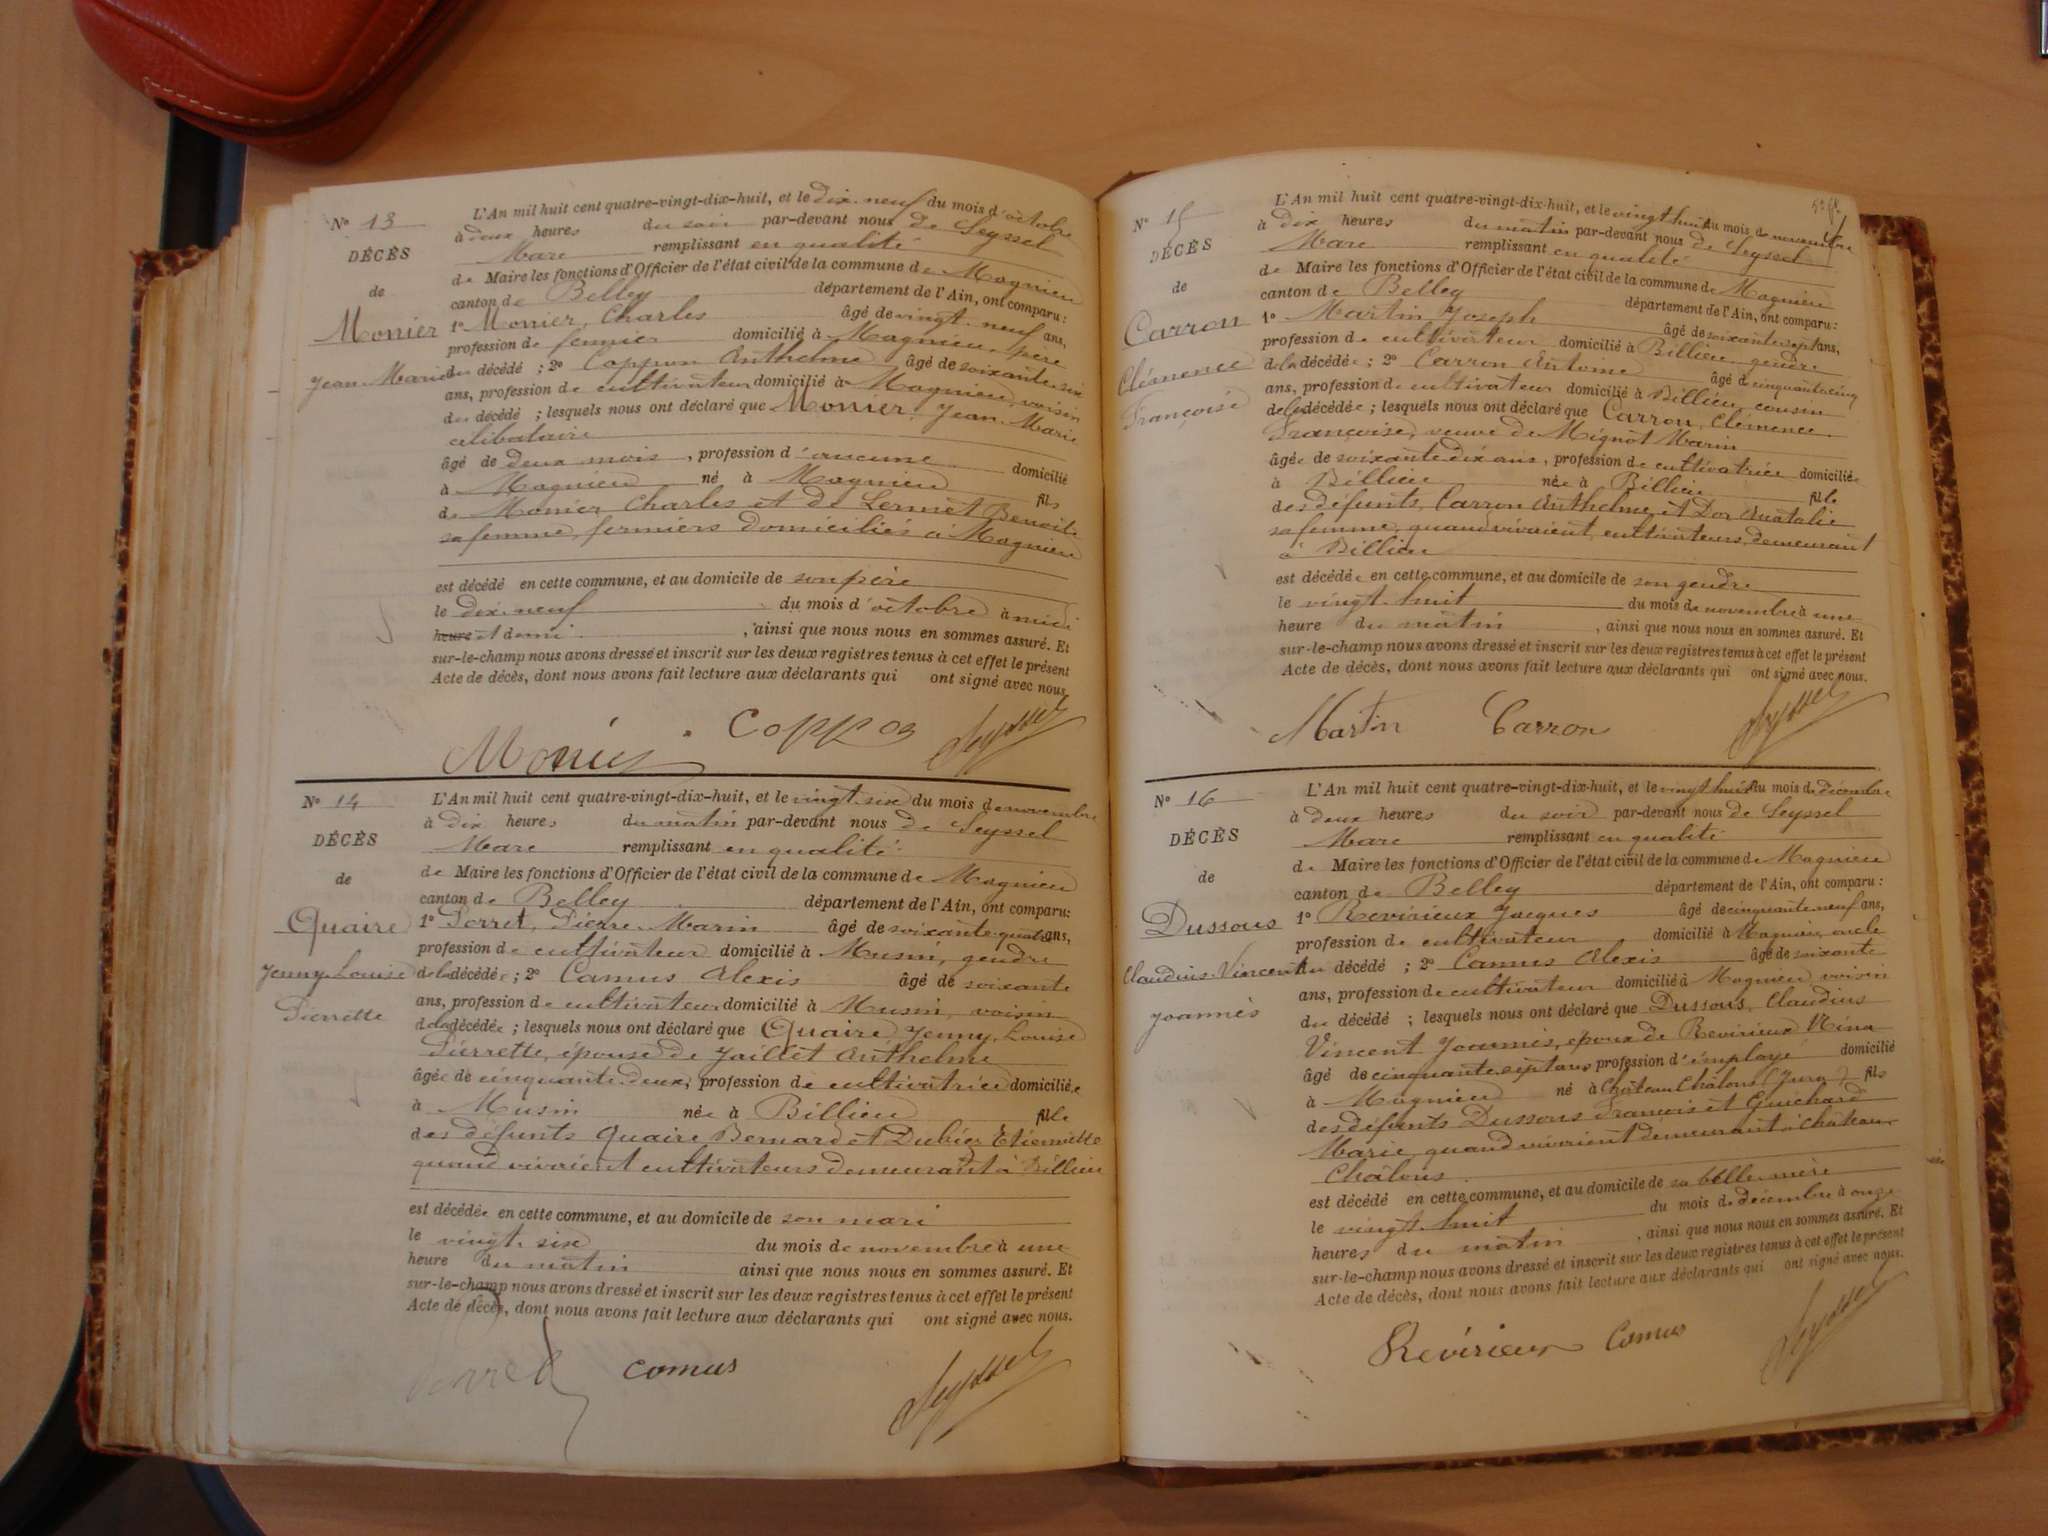 N° 13
DÉCÈS
de
Monier
Jean Marie
L'An mil huit cent quatre-vingt-dix-huit, et le dix-neuf du mois d'octobre
à deux heures du soir par-devant nous de Seyssel
Marc remplissant en qualité
de Maire les fonctions d'Officier de l'état civil de la commune de Magnieu
canton de Belley département de l'Ain, ont comparu :
1° Monier, Charles âgé de vingt-neuf ans,
profession de fermier domicilié à Magnieu, père
du décédé ; 2° Coppon Anthelme âgé de soixante-six
ans, profession de cultivateur domicilié à Magnieu, voisin
du décédé ; lesquels nous ont déclaré que Monier, Jean Marie
célibataire
âgé de deux mois, profession d'aucune domicilié
à Magnieu né à Magnieu fils
de Monier Charles et de Lermet Benoite
sa femme, fermiers domiciliés à Magnieu
est décédé en cette commune, et au domicile de son père
le dix-neuf du mois d'octobre à midi
heure et demi, ainsi que nous nous en sommes assuré. Et
sur-le-champ nous avons dressé et inscrit sur les deux registres tenus à cet effet le présent
Acte de décès, dont nous avons fait lecture aux déclarants qui ont signé avec nous.
Monier Coppon Seyssel
N° 14
DÉCÈS
de
Quaire
Jenny Louise
Pierrette
L'An mil huit cent quatre-vingt-dix-huit, et le vingt-six du mois de novembre
à dix heures du matin par-devant nous de Seyssel
Marc remplissant en qualité
de Maire les fonctions d'Officier de l'état civil de la commune de Magnieu
canton de Belley département de l'Ain, ont comparu :
1° Perret, Pierre Marin âgé de soixante-quatre ans,
profession de cultivateur domicilié à Musin, gendre
de la décédée ; 2° Camus Alexis âgé de soixante
ans, profession de cultivateur domicilié à Musin, voisin
de la décédée ; lesquels nous ont déclaré que Quaire, Jenny, Louise
Pierrette, épouse de Jaillet Anthelme
âgée de cinquante-deux, profession de cultivatrice domiciliée
à Musin née à Billieu fille
des défunts Quaire Bernard et Dubiez Etiennette
quand vivaient cultivateurs demeurant à Billieu
est décédée en cette commune, et au domicile de son mari
le vingt-six du mois de novembre à une
heure du matin ainsi que nous nous en sommes assuré. Et
sur-le-champ nous avons dressé et inscrit sur les deux registres tenus à cet effet le présent
Acte de décès, dont nous avons fait lecture aux déclarants qui ont signé avec nous.
Perret Camus Seyssel
N° 15
DÉCÈS
de
Carron
Clémence
Françoise
L'An mil huit cent quatre-vingt-dix-huit, et le vingt-huit du mois de novembre
à dix heures du matin par-devant nous de Seyssel
Marc remplissant en qualité
de Maire les fonctions d'Officier de l'état civil de la commune de Magnieu
canton de Belley département de l'Ain, ont comparu :
1° Martin Joseph âgé de soixante sept ans,
profession de cultivateur domicilié à Billieu gendre
de la décédée ; 2° Carron Antoine âgé de cinquante cinq
ans, profession de cultivateur domicilié à Billieu, cousin
de la décédée ; lesquels nous ont déclaré que Carron, Clémence
Françoise, veuve de Mignot Marin
âgée de soixante-dix ans, profession de cultivatrice domiciliée
à Billieu née à Billieu fille
des défunts, Carron Anthelme, et Dor Anatalie
sa femme, quand vivaient, cultivateurs, demeurant
à Billieu
est décédée en cette commune, et au domicile de son gendre
le vingt-huit du mois de novembre à une
heure du matin, ainsi que nous nous en sommes assuré. Et
sur-le-champ nous avons dressé et inscrit sur les deux registres tenus à cet effet le présent
Acte de décès, dont nous avons fait lecture aux déclarants qui ont signé avec nous.
Martin Carron Seyssel
N° 16
DÉCÈS
de
Dussous
Claudius Vincent
Joannès
L'An mil huit cent quatre-vingt-dix-huit, et le vingt huit du mois de décembre
à deux heures du soir par-devant nous de Seyssel
Marc remplissant en qualité
de Maire les fonctions d'Officier de l'état civil de la commune de Magnieu
canton de Belley département de l'Ain, ont comparu :
1° Revirieux Jacques âgé de cinquante-neuf ans,
profession de cultivateur domicilié à Magnieu, oncle
du décédé ; 2° Camus Alexis âgé de soixante
ans, profession de cultivateur domicilié à Magnieu voisin
du décédé ; lesquels nous ont déclaré que Dussous, Claudius
Vincent Joannès, époux de Revirieux Nina
âgé de cinquante-sept ans profession d'employé domicilié
à Magnieu né à Château Châlons (Jura) fils
des défunts Dussous François et Guichard
Marie, quand vivaient demeurant à Château-
Châlons
est décédé en cette commune, et au domicile de sa belle-mère
le vingt-huit du mois de décembre à onze
heures du matin, ainsi que nous nous en sommes assuré. Et
sur-le-champ nous avons dressé et inscrit sur les deux registres tenus à cet effet le présent
Acte de décès, dont nous avons fait lecture aux déclarants qui ont signé avec nous.
Revirieux Camus Seyssel